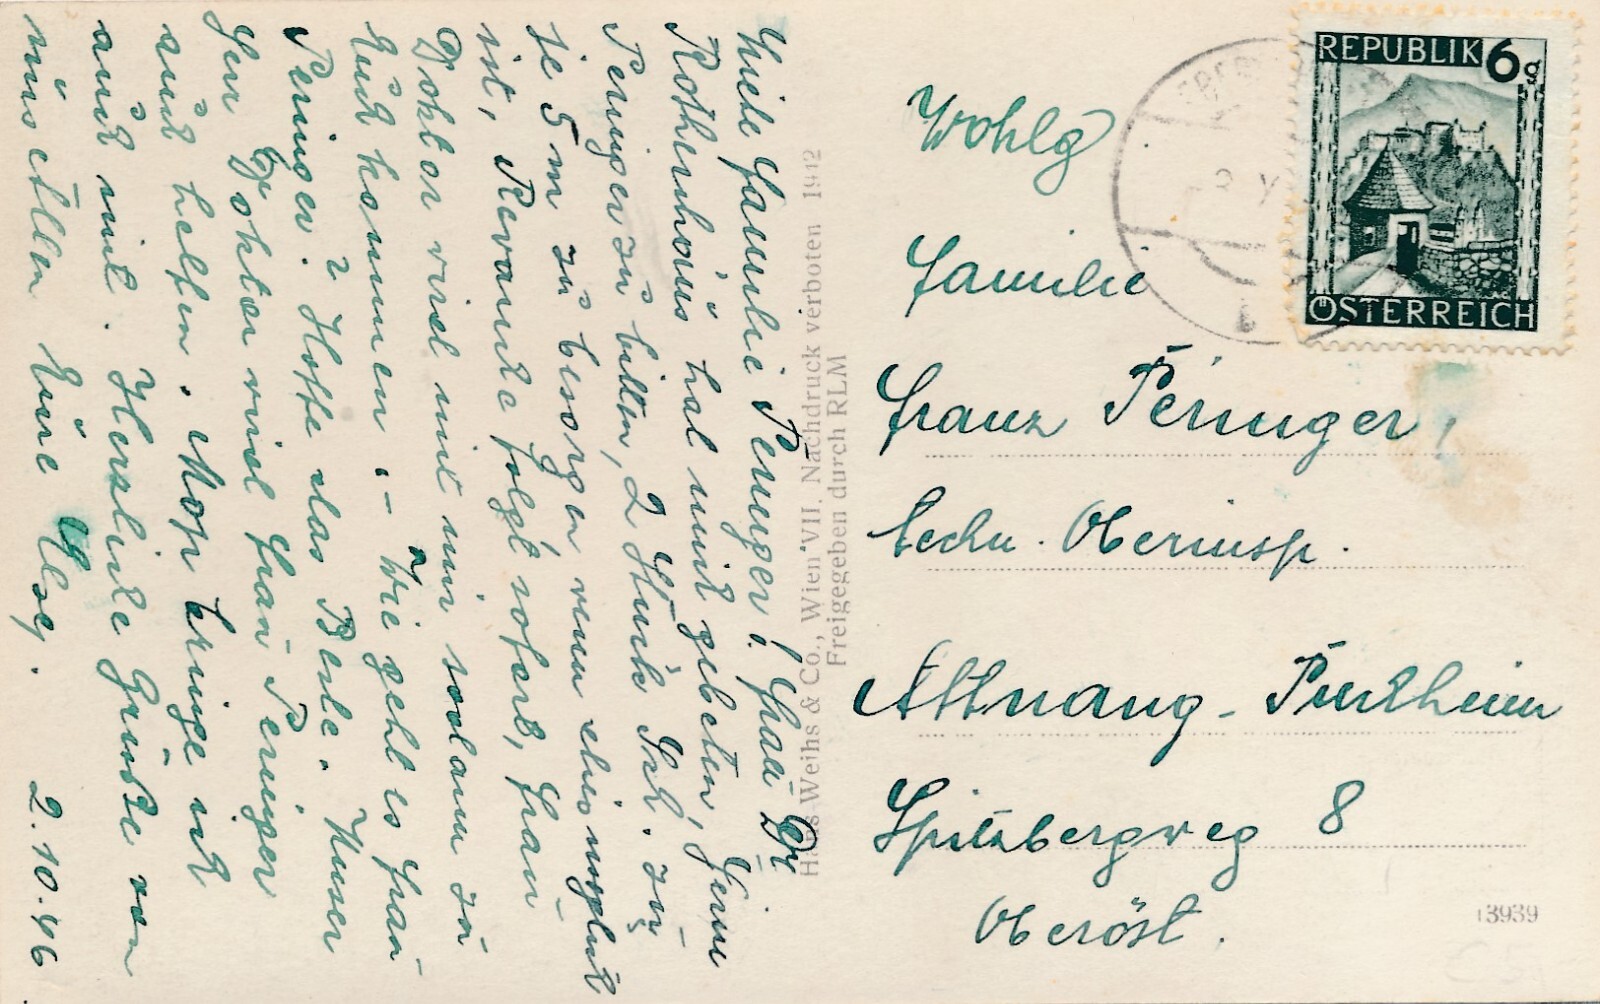 Liebe Familie Peringer! Frau Dr
Rothenhäus hat mich gebeten, Herrn
Peringer zu bitten, 2 Stück
je 5m zu besorgen wenn dies möglich
ist, Revanche folgt sofort, Frau
Doktor wird mit mir sodann zu
Euch kommen. – Wie geht es Frau
Peringer? Hoffe das Beste. Unser
Herr Doktor wird Frau Peringer
auch helfen.
auch mit. Herzliche Grüße von
uns allen Eure
2.10.46
Hans Weihs & Co., Wien VII. Nachdruck verboten 1942
Freigegeben durch RLM
REPUBLIK 6g
ÖSTERREICH
Wohlg
Familie
Franz Peringer,
techn. Oberinsp.
Attnang-Puchheim
Spitzbergweg 8
Oberöst.
13939